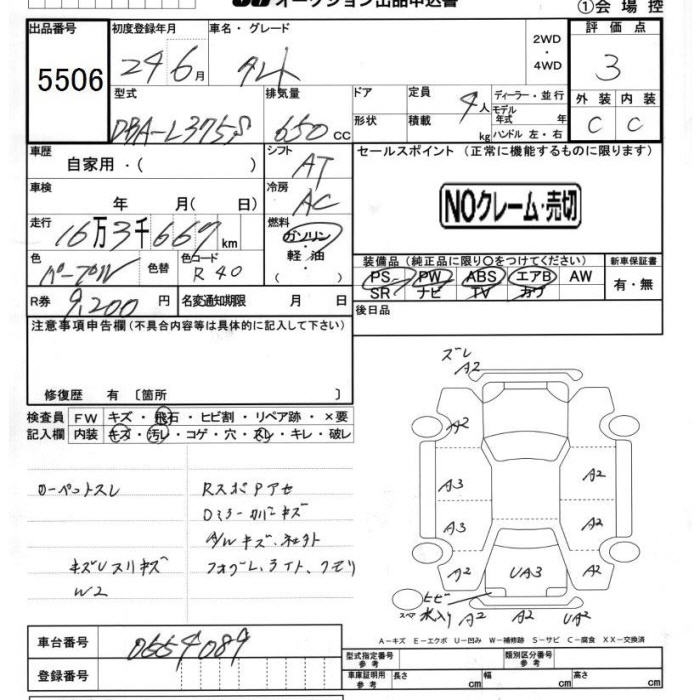 オークション出品申込書
①会場控
出品番号 初度登録年月 車名・グレード 2WD 評価点
5506 24 6月 タント ・ 3
4WD
型式 排気量 ドア 定員 4人 ディーラー・並行 外装 内装
DBA-L375S 650cc 形状 積載 kg モデル年式 年 C C
ハンドル 左・右
車歴 シフト セールスポイント (正常に機能するものに限ります)
自家用・( ) AT
車検 冷房 NOクレーム・売切
年 月( 日) AC
走行 燃料
16万3千667km ガソリン
軽油
装備品 (純正品に限り○をつけてください) 新車保証書
色 色替 色コード PS PW ABS エアB AW 有・無
パープル R40 SR ナビ TV カワ
R券 9,200円 名変通知期限 月 日 後日品
注意事項申告欄(不具合内容等は具体的に記入して下さい)
修復歴 有 〔箇所 〕
検査員 FW キズ・飛石・ヒビ割・リペア跡・×要
記入欄 内装 キズ・汚レ・コゲ・穴・スレ・キレ・破レ
ズレ
A2
A2
A3 A2
A3 A2
A2 UA3 A2
ヒビ
水入り A2 A2 UA2
スペア
カーペットスレ RスポPアセ
Dミラーカバーキズ
A/Wキズ、
キズUスリキズ フォグL、ライト、クモリ
W2
A-キズ E-エクボ U-凹み W-補修跡 S-サビ C-腐食 XX-交換済
車台番号 0664089
型式指定番号 参考 類別区分番号 参考
登録番号 車庫証明用 参考 長さ cm 幅 cm 高さ cm